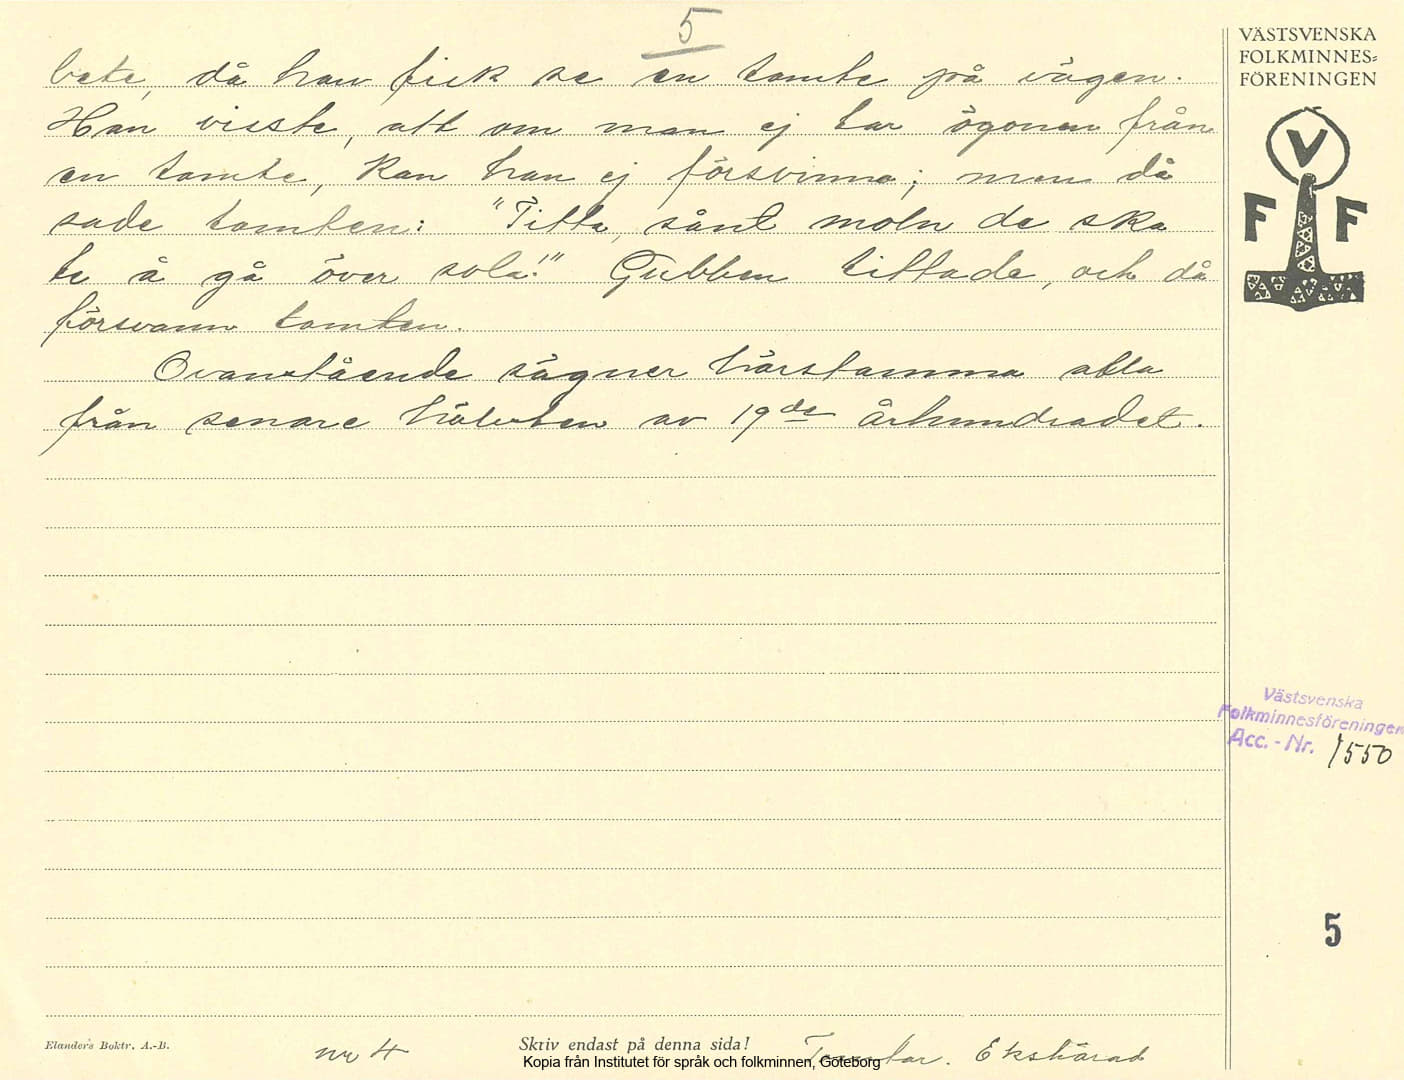 5
VÄSTSVENSKA
FOLKMINNES=
FÖRENINGEN
bete, då han fick se en tomte på vägen.
Han visste, att om man ej tar ögonen från
en tomte, kan han ej försvinna; men då
sade tomten: "Titta, sånt moln de ska
te å gå över sola!" Gubben tittade, och då
försvann tomten.
Ovanstående sägner härstamma alla
från senare hälvten av 19de århundradet.
V
F F
Västsvenska
Folkminnesföreningen
Acc. - Nr. 1550
5
Elanders Boktr. A.-B.
nr 4
Skriv endast på denna sida!
Tomtar. Ekshärad
Kopia från Institutet för språk och folkminnen, Göteborg